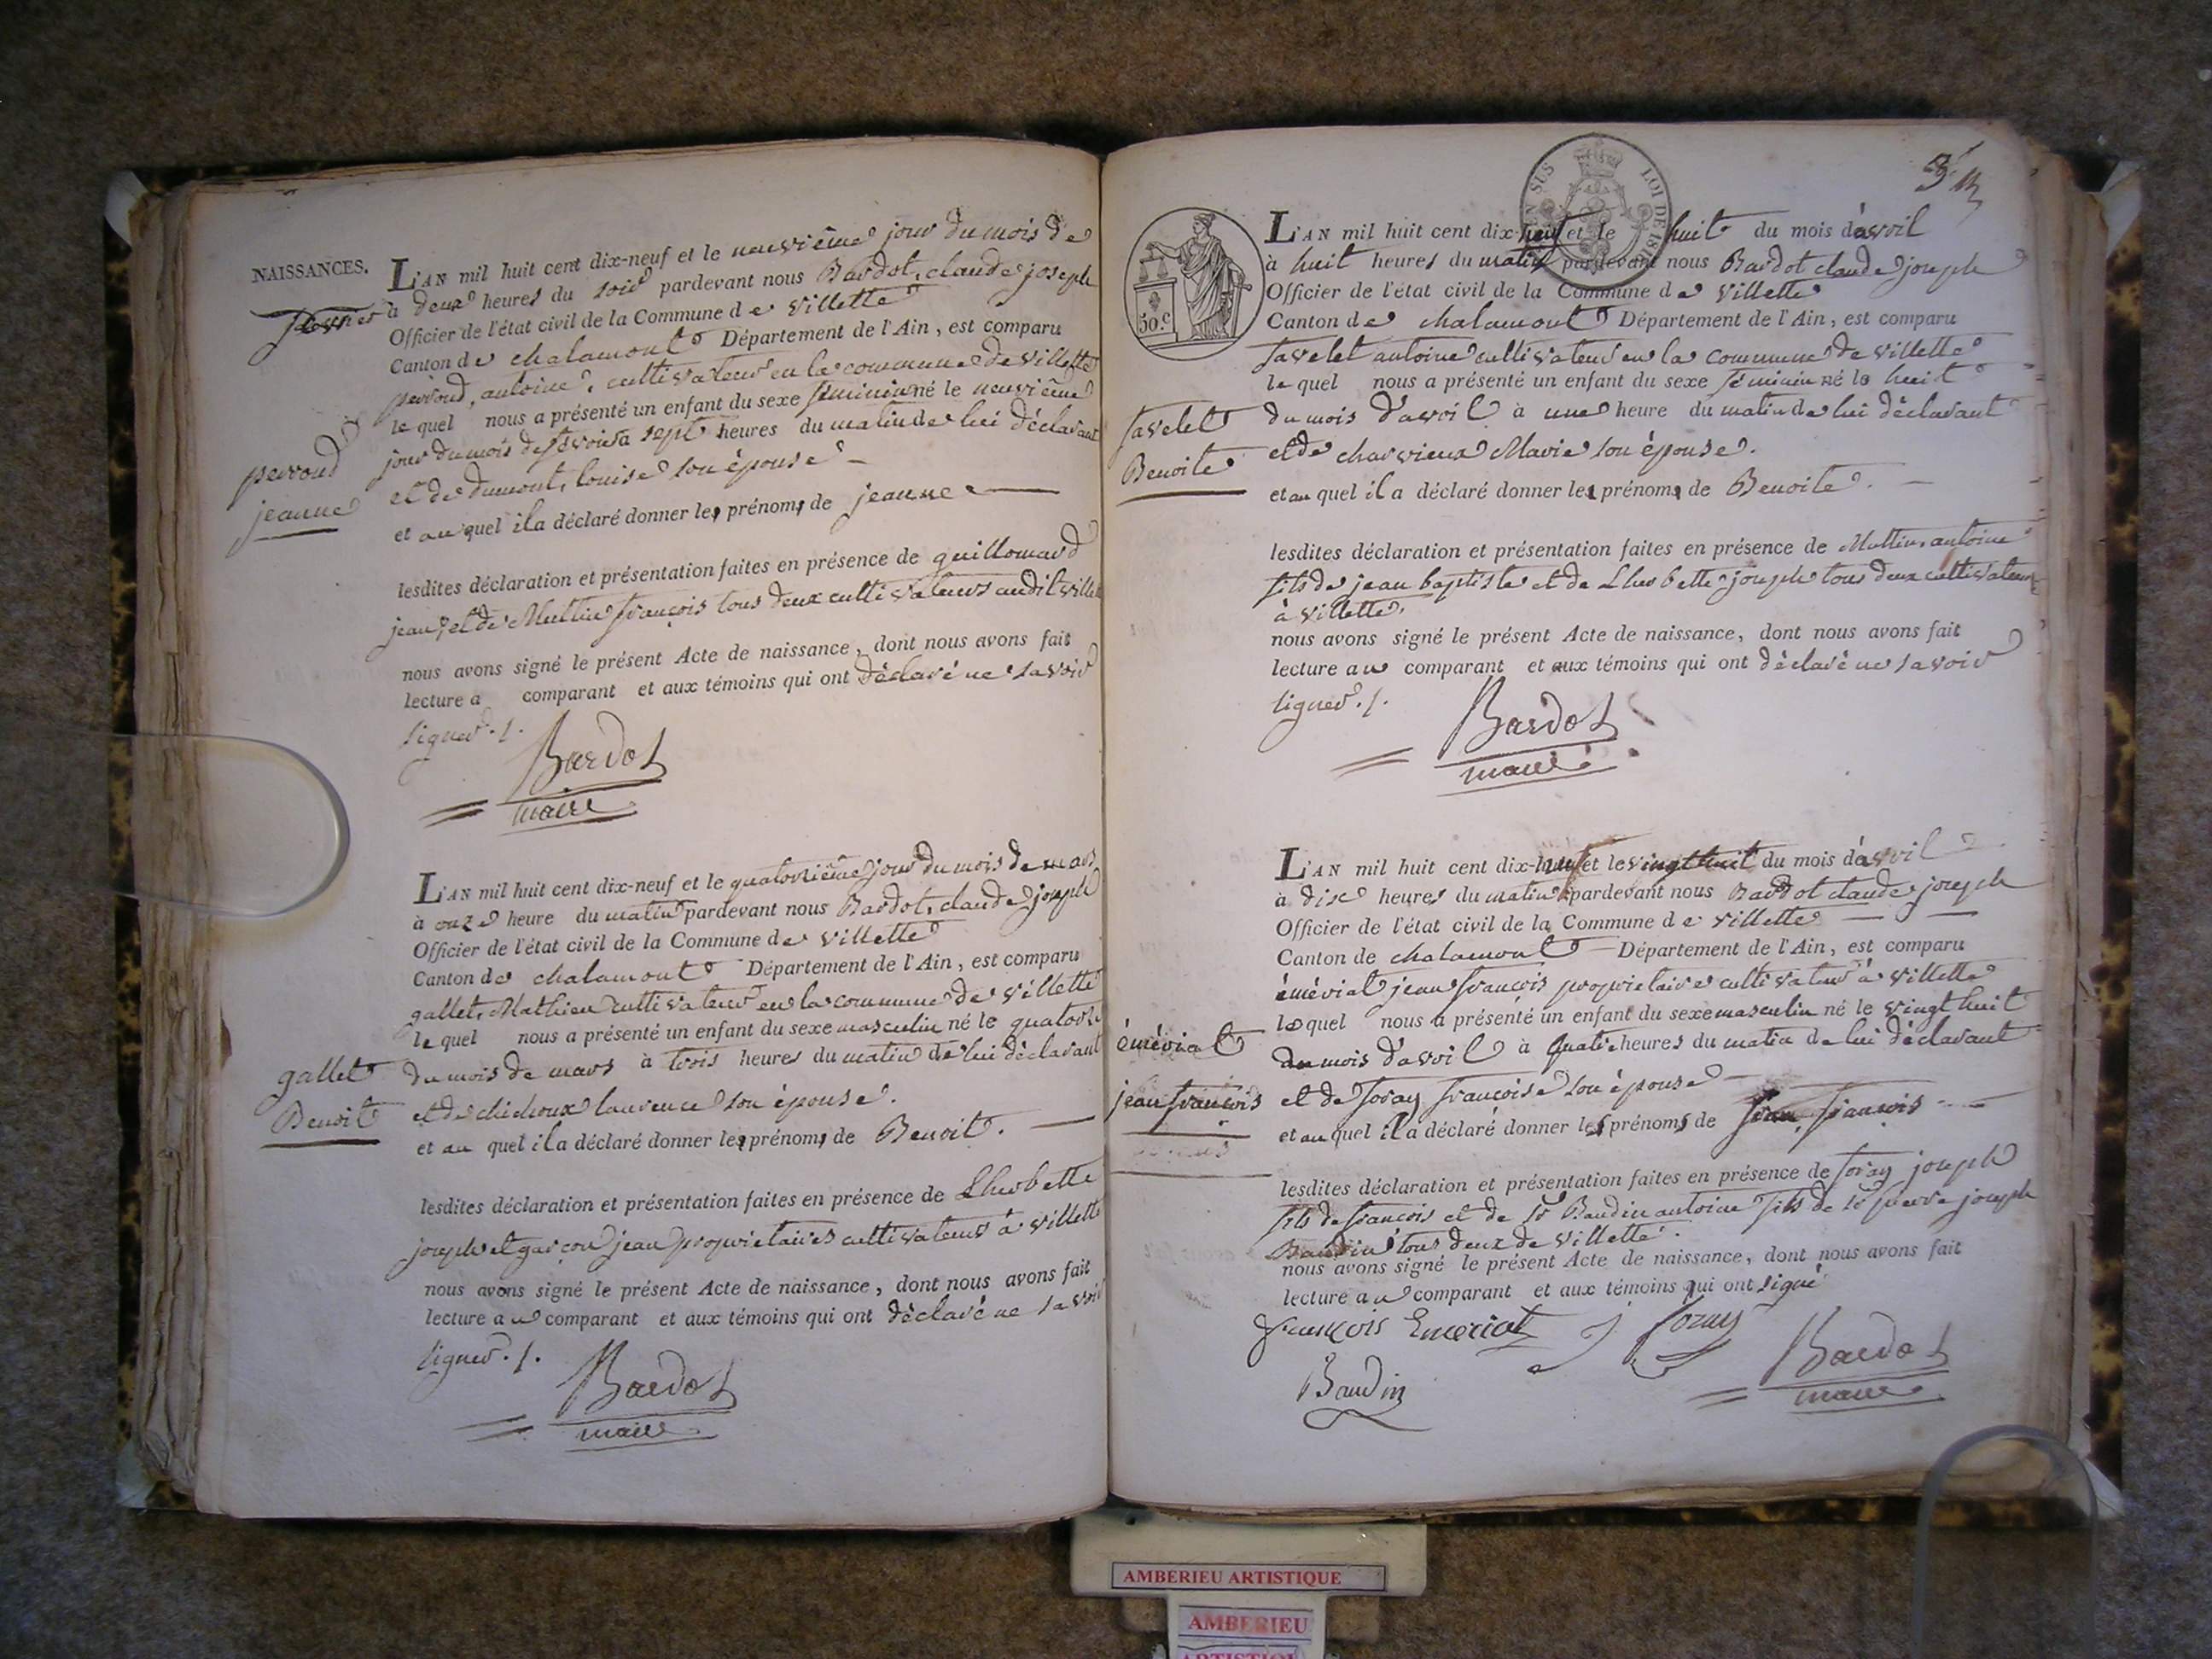 NAISSANCES.
L'AN mil huit cent dix-neuf et le neuvième jour du mois de
à deux heures du soir pardevant nous Bardot, claude joseph
Officier de l'état civil de la Commune de villette
Canton de chalamont Département de l'Ain, est comparu
perroud, antoine, cultivateur en la commune de villette
le quel nous a présenté un enfant du sexe feminin né le neuvième
jour du mois de fevrier à sept heures du matin de lui déclarant
et de dumont, louise son épouse
et au quel il a déclaré donner les prénoms de jeanne
perroud
jeanne
lesdites déclaration et présentation faites en présence de guillomard
jean, et de Muttin françois tous deux cultivateurs audit villette
nous avons signé le présent Acte de naissance, dont nous avons fait
lecture a comparant et aux témoins qui ont déclaré ne savoir
signer ./.
Bardot
maire
L'AN mil huit cent dix-neuf et le quatorzième jour du mois de mars
à onze heure du matin pardevant nous Bardot, claude joseph
Officier de l'état civil de la Commune de villette
Canton de chalamont Département de l'Ain, est comparu
gallet, Mathieu cultivateur en la commune de villette
le quel nous a présenté un enfant du sexe masculin né le quatorze
du mois de mars à trois heures du matin de lui déclarant
et de chichoux laurence son épouse.
et au quel il a déclaré donner les prénoms de Benoit.
gallet
Benoit
lesdites déclaration et présentation faites en présence de Lherbette
joseph et garçon jean proprietaires cultivateurs à villette
nous avons signé le présent Acte de naissance, dont nous avons fait
lecture au comparant et aux témoins qui ont déclaré ne savoir
signer ./.
Bardot
maire
EN SUS LOI DE
50.c
L'AN mil huit cent dix-neuf et le huit du mois d'avril
à huit heures du matin pardevant nous Bardot claude joseph
Officier de l'état civil de la Commune de villette
Canton de chalamont Département de l'Ain, est comparu
favelet antoine cultivateur en la commune de villette
le quel nous a présenté un enfant du sexe féminin né le huit
du mois d'avril à une heure du matin de lui déclarant
et de charvieux Marie son épouse.
et au quel il a déclaré donner les prénoms de Benoite.
favelet
Benoite
lesdites déclaration et présentation faites en présence de Muttin, antoine
fils de jean baptiste et de Lherbette joseph tous deux cultivateurs
à villette.
nous avons signé le présent Acte de naissance, dont nous avons fait
lecture au comparant et aux témoins qui ont déclaré ne savoir
signer ./.
Bardot
maire
L'AN mil huit cent dix-neuf et le vingt huit du mois d'avril
à dix heures du matin pardevant nous Bardot claude joseph
Officier de l'état civil de la Commune de villette
Canton de chalamont Département de l'Ain, est comparu
émériat jean françois proprietaire cultivateur à villette
le quel nous a présenté un enfant du sexe masculin né le vingt huit
du mois d'avril à quatre heures du matin de lui déclarant
et de foray françoise son épouse
et au quel il a déclaré donner les prénoms de jean, françois
émériat
jean françois
lesdites déclaration et présentation faites en présence de foray joseph
fils de françois et de Sr Baudin antoine fils de Sr pierre joseph
Baudin tous deux de villette.
nous avons signé le présent Acte de naissance, dont nous avons fait
lecture au comparant et aux témoins qui ont signé
françois Emeriat J foray
Bardot
maire
Baudin
AMBERIEU ARTISTIQUE
AMBERIEU
ARTISTIQUE